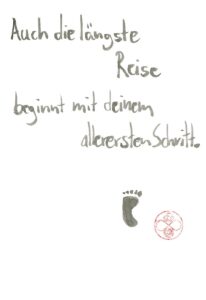 Auch die längste
Reise
beginnt mit deinem
allerersten Schritt.